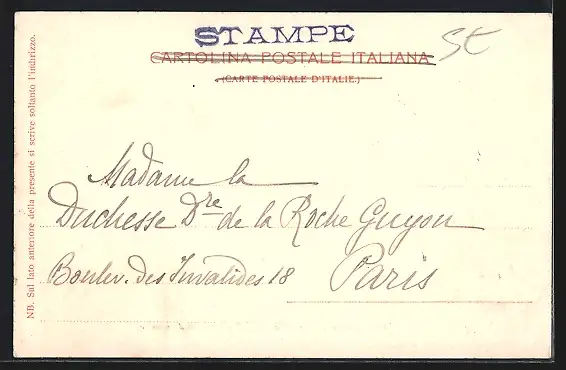 STAMPE
CARTOLINA POSTALE ITALIANA
(CARTE POSTALE D'ITALIE.)
St
Madame la
Duchesse Dre de la Roche Guyon
Boulev. des Invalides 18 Paris
NB. Sul lato anteriore della presente si scrive soltanto l'indirizzo.